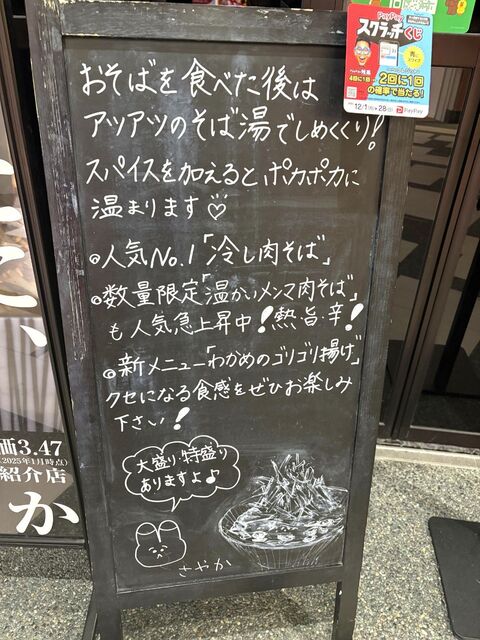 PayPay
スクラッチくじ
2回に1回
の確率で当たる!
PayPay
おそばを食べた後は
アツアツのそば湯でしめくくり!
スパイスを加えるとポカポカに
温まります♡
人気No.1「冷し肉そば」
数量限定「温かいメンマ肉そば」
も人気急上昇中!熱・旨・辛!
新メニュー「わかめのゴリゴリ揚げ」
クセになる食感をぜひお楽しみ
下さい!
大盛り・特盛り
ありますよ♪
さやか
価3.47
2025年1月時点)
紹介店
か